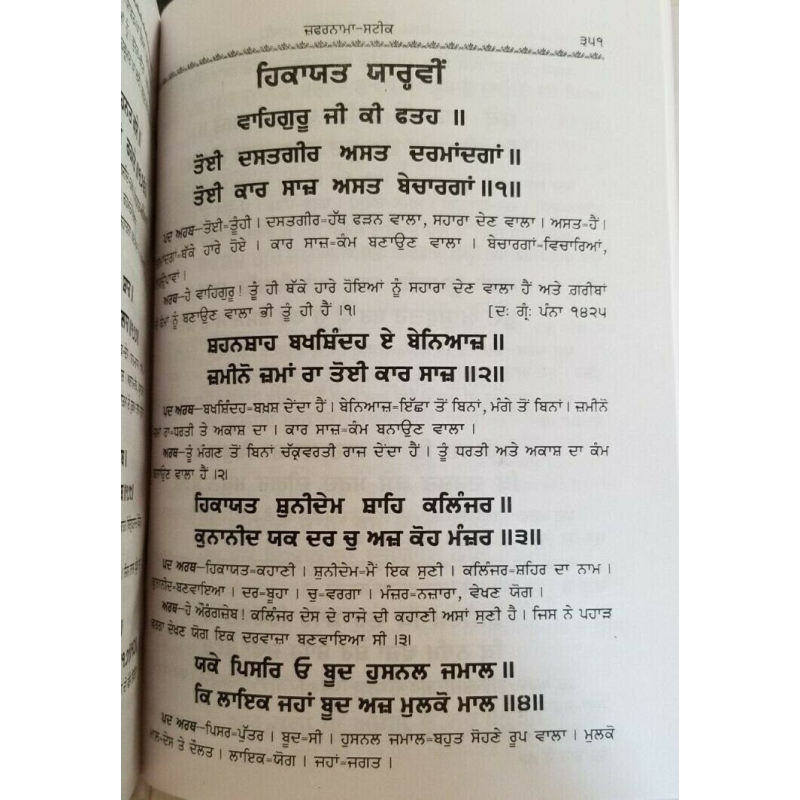 ਜ਼ਫਰਨਾਮਾ-ਸਟੀਕ
੩੫੧
ਹਿਕਾਯਤ ਯਾਰ੍ਹਵੀਂ
ਵਾਹਿਗੁਰੂ ਜੀ ਕੀ ਫਤਹ ॥
ਤੋਈ ਦਸਤਗੀਰ ਅਸਤ ਦਰਮਾਂਦਗਾਂ ॥
ਤੋਈ ਕਾਰ ਸਾਜ਼ ਅਸਤ ਬੇਚਾਰਗਾਂ ॥੧॥
ਪਦ ਅਰਥ-ਤੋਈ=ਤੂੰਹੀ । ਦਸਤਗੀਰ=ਹੱਥ ਫੜਨ ਵਾਲਾ, ਸਹਾਰਾ ਦੇਣ ਵਾਲਾ । ਅਸਤ=ਹੈਂ।
ਥੱਕੇ ਹਾਰੇ ਹੋਏ । ਕਾਰ ਸਾਜ਼=ਕੰਮ ਬਣਾਉਣ ਵਾਲਾ । ਬੇਚਾਰਗਾਂ=ਵਿਚਾਰਿਆਂ,
ਅਰਥ-ਹੇ ਵਾਹਿਗੁਰੂ! ਤੂੰ ਹੀ ਥੱਕੇ ਹਾਰੇ ਹੋਇਆਂ ਨੂੰ ਸਹਾਰਾ ਦੇਣ ਵਾਲਾ ਹੈਂ ਅਤੇ ਗ਼ਰੀਬਾਂ
ਨੂੰ ਬਣਾਉਣ ਵਾਲਾ ਭੀ ਤੂੰ ਹੀ ਹੈਂ ।੧। [ਦ: ਗ੍ਰੰ: ਪੰਨਾ ੧੪੨੫
ਸ਼ਹਨਸ਼ਾਹ ਬਖਸ਼ਿੰਦਹ ਏ ਬੇਨਿਆਜ਼ ॥
ਜ਼ਮੀਨੋ ਜ਼ਮਾਂ ਰਾ ਤੋਈ ਕਾਰ ਸਾਜ਼ ॥੨॥
ਪਦ ਅਰਥ-ਬਖਸ਼ਿੰਦਹ=ਬਖ਼ਸ਼ ਦੇਂਦਾ ਹੈਂ । ਬੇਨਿਆਜ਼=ਇੱਛਾ ਤੋਂ ਬਿਨਾਂ, ਮੰਗੇ ਤੋਂ ਬਿਨਾਂ। ਜ਼ਮੀਨੋ
ਰਾ=ਧਰਤੀ ਤੇ ਅਕਾਸ਼ ਦਾ । ਕਾਰ ਸਾਜ਼=ਕੰਮ ਬਨਾਉਣ ਵਾਲਾ ।
ਅਰਥ-ਤੂੰ ਮੰਗਣ ਤੋਂ ਬਿਨਾਂ ਚੱਕ੍ਰਵਰਤੀ ਰਾਜ ਦੇਂਦਾ ਹੈਂ । ਤੂੰ ਧਰਤੀ ਅਤੇ ਅਕਾਸ਼ ਦਾ ਕੰਮ
ਬਣਾਉਣ ਵਾਲਾ ਹੈਂ ।੨।
ਹਿਕਾਯਤ ਸ਼ੁਨੀਦੇਮ ਸ਼ਾਹਿ ਕਲਿੰਜਰ ॥
ਕੁਨਾਨੀਦ ਯਕ ਦਰ ਚੁ ਅਜ਼ ਕੋਹ ਮੰਜ਼ਰ ॥੩॥
ਪਦ ਅਰਥ-ਹਿਕਾਯਤ=ਕਹਾਣੀ । ਸ਼ੁਨੀਦੇਮ=ਮੈਂ ਇਕ ਸੁਣੀ । ਕਲਿੰਜਰ=ਸ਼ਹਿਰ ਦਾ ਨਾਮ ।
ਕੁਨਾਨੀਦ=ਬਣਵਾਇਆ । ਦਰ=ਬੂਹਾ । ਚੁ=ਵਰਗਾ । ਮੰਜ਼ਰ=ਨਜ਼ਾਰਾ, ਵੇਖਣ ਯੋਗ ।
ਅਰਥ-ਹੇ ਔਰੰਗਜ਼ੇਬ! ਕਲਿੰਜਰ ਦੇਸ ਦੇ ਰਾਜੇ ਦੀ ਕਹਾਣੀ ਅਸਾਂ ਸੁਣੀ ਹੈ । ਜਿਸ ਨੇ ਪਹਾੜ
ਵਰਗਾ ਦੇਖਣ ਯੋਗ ਇਕ ਦਰਵਾਜ਼ਾ ਬਣਵਾਇਆ ਸੀ ।੩।
ਯਕੇ ਪਿਸਰਿ ਓ ਬੂਦ ਹੁਸਨਲ ਜਮਾਲ ॥
ਕਿ ਲਾਇਕ ਜਹਾਂ ਬੂਦ ਅਜ਼ ਮੁਲਕੋ ਮਾਲ ॥੪॥
ਪਦ ਅਰਥ-ਪਿਸਰ=ਪੁੱਤਰ । ਬੂਦ=ਸੀ । ਹੁਸਨਲ ਜਮਾਲ=ਬਹੁਤ ਸੋਹਣੇ ਰੂਪ ਵਾਲਾ । ਮੁਲਕੋ
ਮਾਲ=ਦੇਸ ਤੇ ਦੌਲਤ । ਲਾਇਕ=ਯੋਗ । ਜਹਾਂ=ਜਗਤ ।